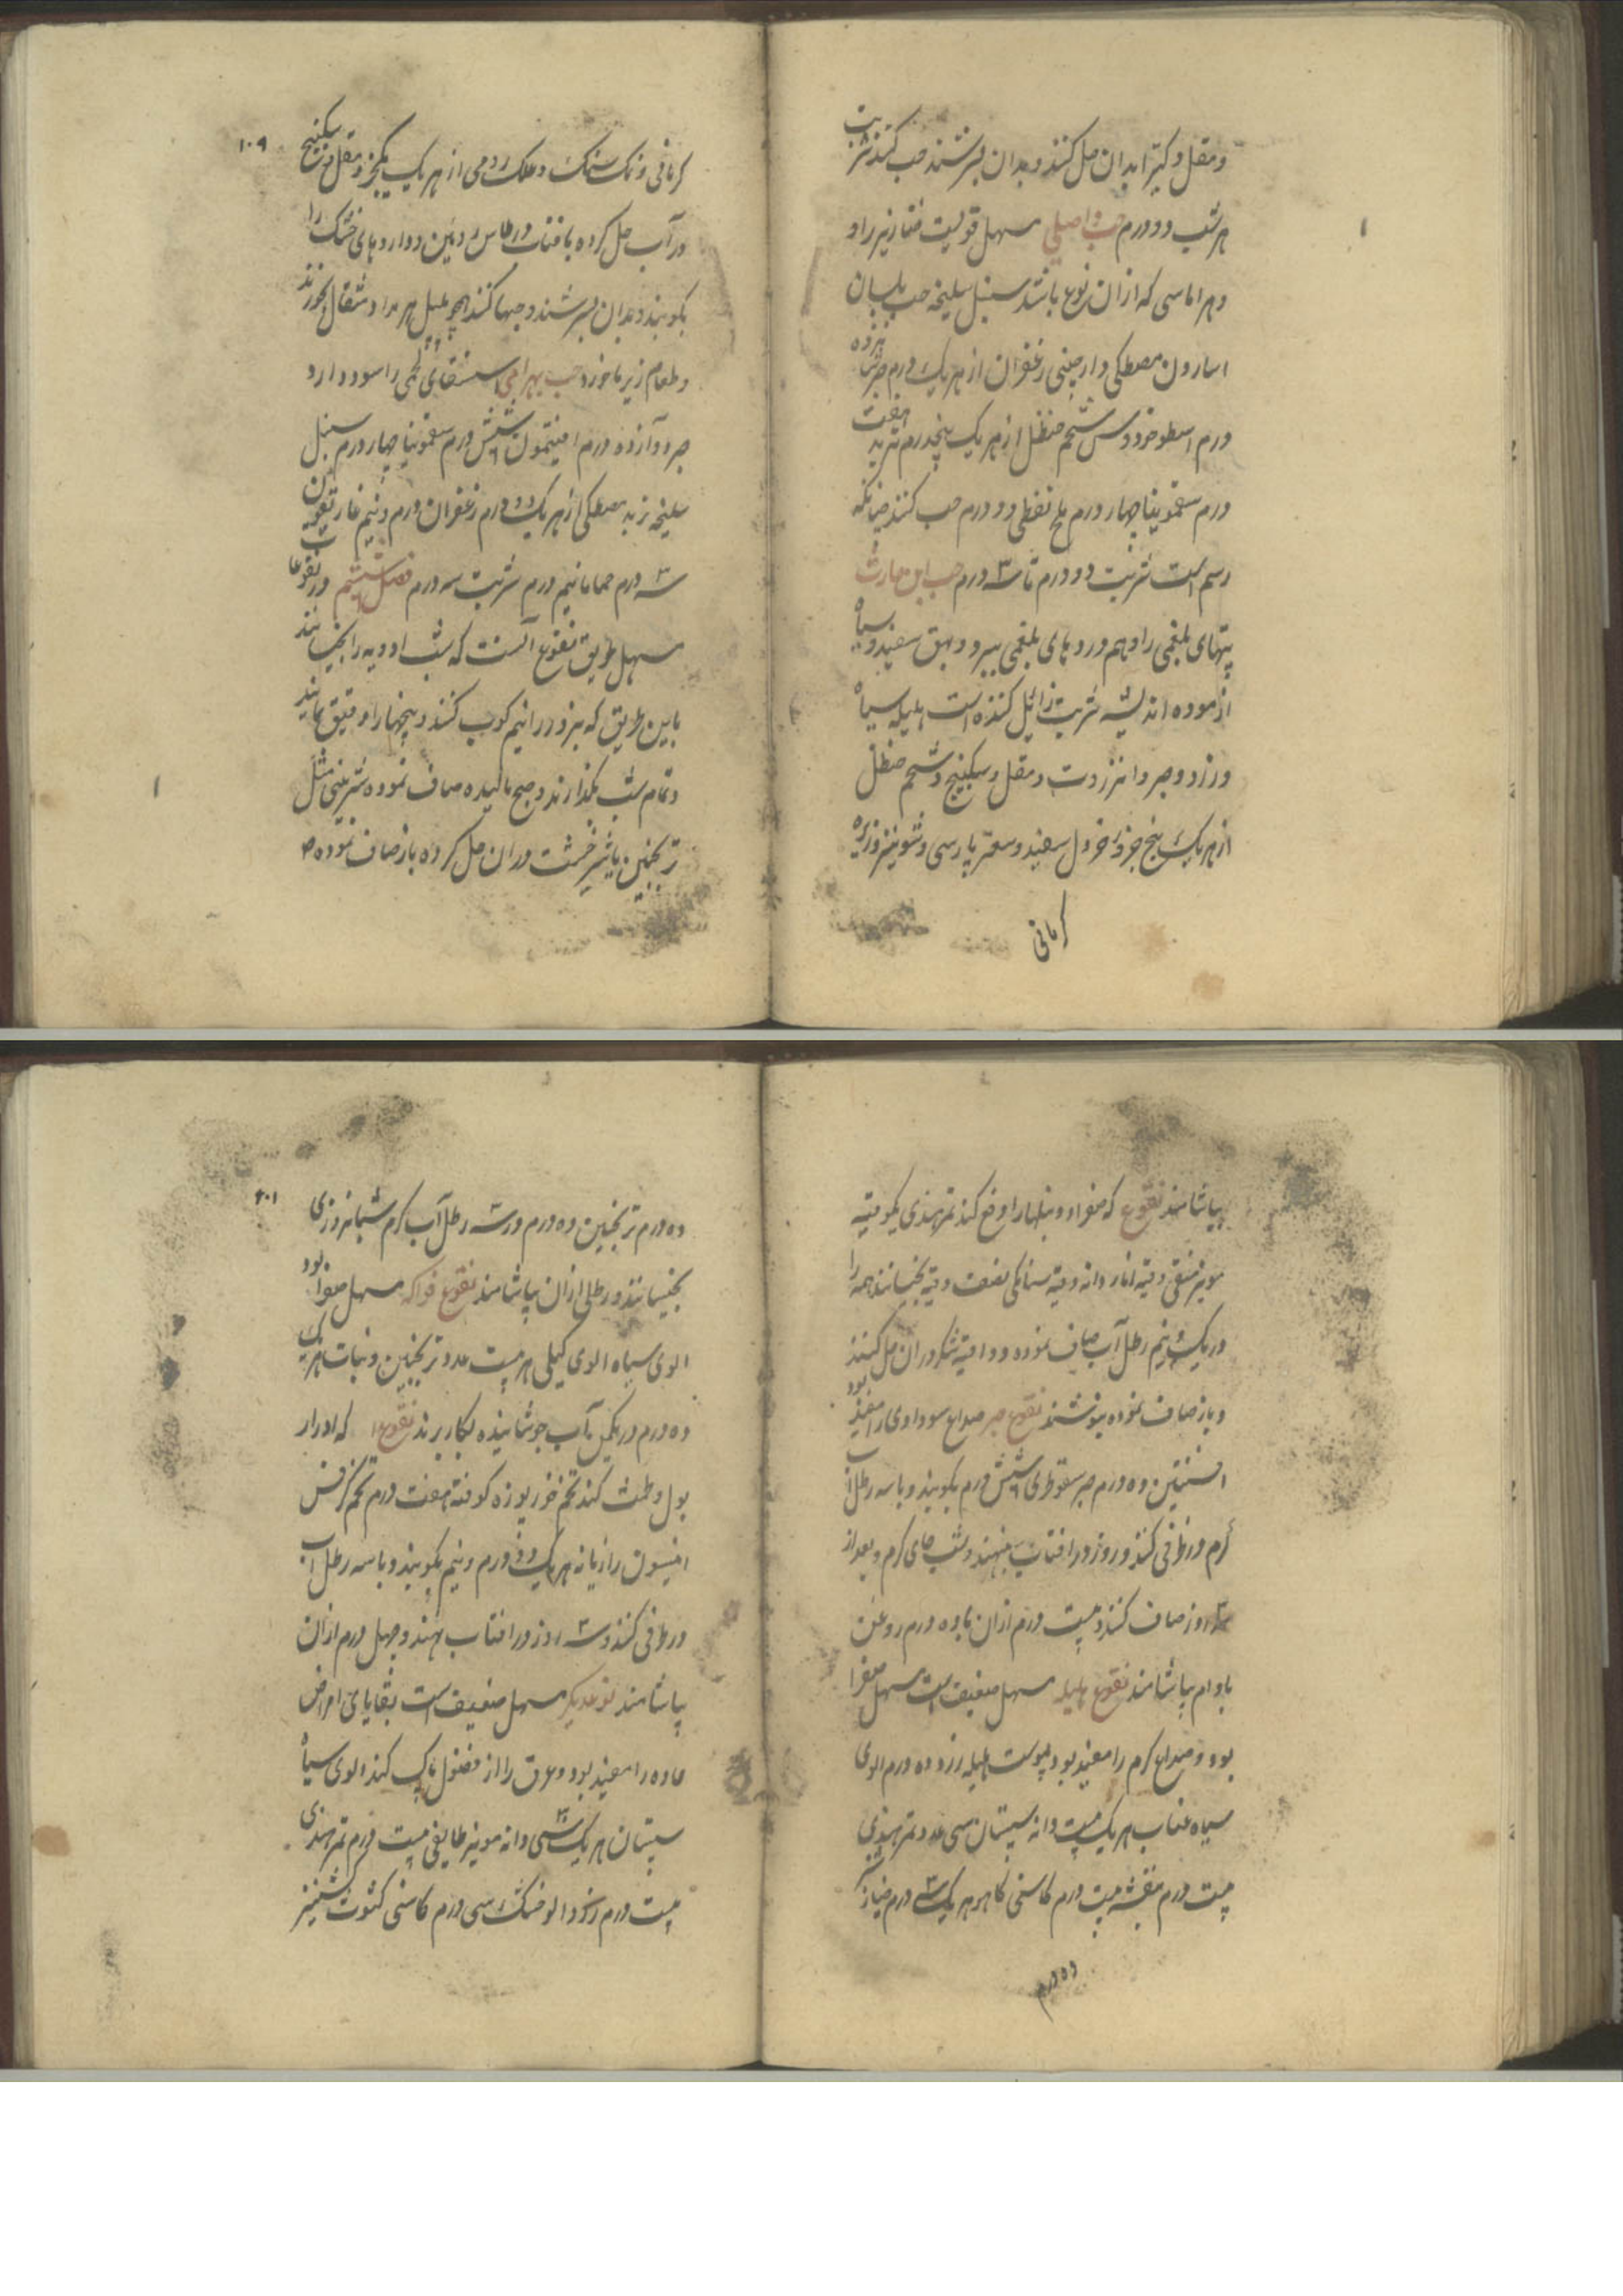 و مقل و کتیرا بدان حل کنند و بدان بسرشند حب کنند شربت
هر شب دو درم حب واصلی مسهل قویست خنازیر را و
و هر اماسی که ازان نوع باشد سنبل سلیخه حب بلسان
اسارون مصطکی دارچینی زعفران از هر یک درم صبر شانزده
درم اسطوخودوس شحم حنظل از هر یک پنجدرم تربد هفت
درم سقمونیا چهار درم ملح نفطی دو درم حب کنند چنانکه
رسم است شربت دو درم تا سه درم حب ابن حارث
تبهای بلغمی را و هم وردهای بلغمی ببرد و بهق سفید و سیاه
ازموده اند شربت زائل کننده است هلیله سیاه
و زرد و صبر و انزروت و مقل و سکبینج و شحم حنظل
از هر یک پنج جزو خردل سفید و سعتر پارسی و شونیز و زیره
کرمانی
۱۰۹
کرمانی و نمک سنگ و علک رومی از هر یک یکجزو مقل و سکبینج
در آب حل کرده بافتاب در طاس روئین و داروهای خشک را
بکوبند و بدان بسرشند و حبها کنند همچو فلفل هر بار دو مثقال بخورند
و طعام زیرباخورد حب بهرامی استسقای لحمی را سود دارد
صبر دوازده درم افیتمون شش درم سقمونیا چهار درم سنبل
سلیخه زبد مصطکی از هر یک دو درم زعفران درم و نیم غاریقون
سه درم حماما نیم درم شربت سه درم فصل ششم در نقوعات
مسهل طریق نقوع آنست که شب ادویه را بخیسانند
باین طریق که بزور را نیم کوب کنند و بیخها را دقیق نمایند
و تمام شب بگذارند و صبح مالیده صاف نموده شیرینی مثل
ترنجبین یا شیرخشت دران حل کرده باز صاف نموده
بیاشامند نقوع که صفرا و تبها را دفع کند تمرهندی یکوقیه
مویز منقی وقیه انار دانه وقیه سنامکی نصف وقیه بخیسانند همه را
در یک و نیم رطل آب صاف نموده دو اوقیه شکر دران حل کنند
و باز صاف نموده بنوشند نقوع صبر صداع سوداوی را مفید بود
افسنتین ده درم صبر سقوطری شش درم بکوبند و با سه رطل آب
گرم در ظرفی کنند و روز در افتاب بنهند و شب جای گرم و بعد از
سه روز صاف کنند و بیست درم ازان با ده درم روغن
بادام بیاشامند نقوع هلیله مسهل ضعیف است مسهل صفرا
بود و صداع گرم را مفید بود پوست هلیله زرد ده درم الوی
سیاه عناب هر یک بیست دانه سپستان سی عدد تمرهندی
بیست درم بنفشه بیست درم کاسنی کاهو هر یک سه درم خیارک
ده درم
۲۰۱
ده درم ترنجبین ده درم در سه رطل آب گرم شبانروزی
بخیسانند و رطلی ازان بیاشامند نقوع فواکه مسهل صفرا بود
الوی سیاه الوی کیلی هر بیست عدد ترنجبین و نبات هر یک
ده درم در یکمن آب جوشانیده بکار برند نقوع که ادرار
بول و طمث کند تخم خرپوزه کوفته هفت درم تخم کرفس
انیسون رازیانه هر یک دو درم و نیم بکوبند و با سه رطل آب
در ظرفی کنند و سه روز در افتاب نهند و چهل درم ازان
بیاشامند نوعدیگر مسهل ضعیف است بقایای امراض
حاده را مفید بود و عروق را از فضول پاک کند الوی سیاه
سپستان هر یک سی دانه مویز طایفی بیست درم تمرهندی
بیست درم زردالو خشک سی درم کاسنی کشوث کشنیز